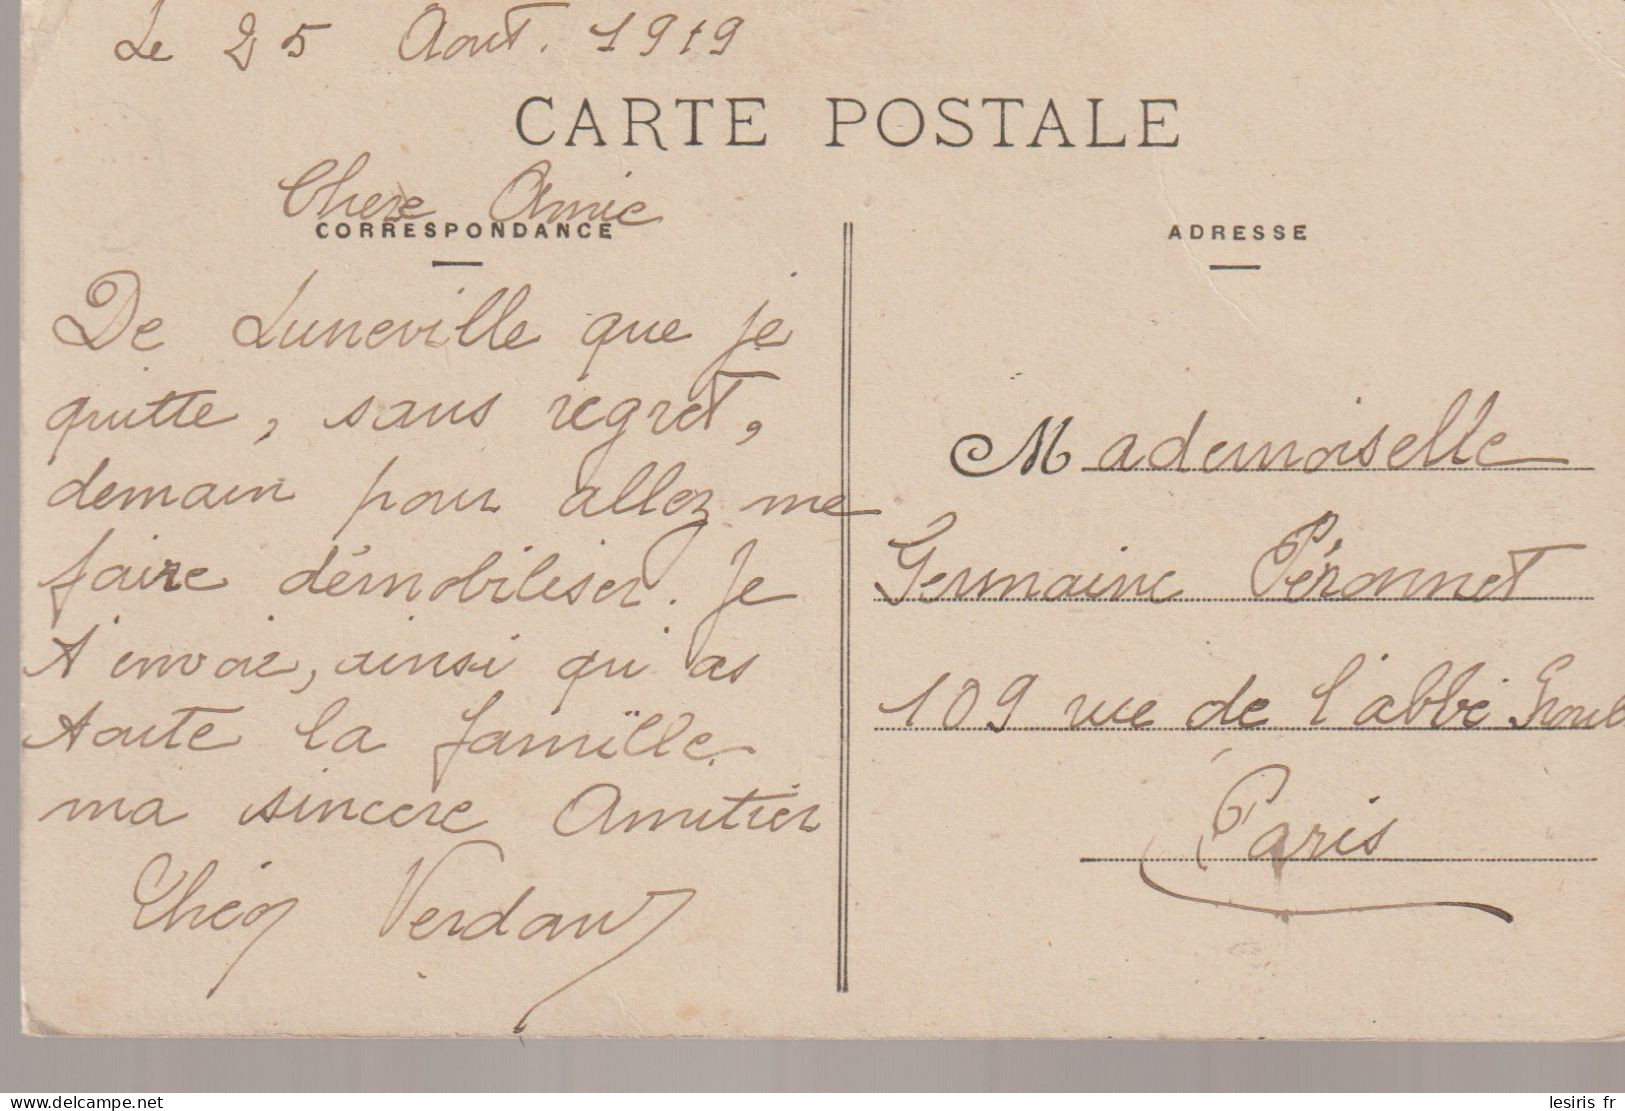 Le 25 Aout. 1919
CARTE POSTALE
Chere Amie
CORRESPONDANCE
De Luneville que je
quitte, sans regret,
demain pour aller me
faire démobiliser. Je
t'envoie, ainsi qu'as
toute la famille
ma sincere Amitier
Verdan
ADRESSE
Mademoiselle
Germaine Péronnet
109 rue de l'abbé Groul
Paris
lesiris fr